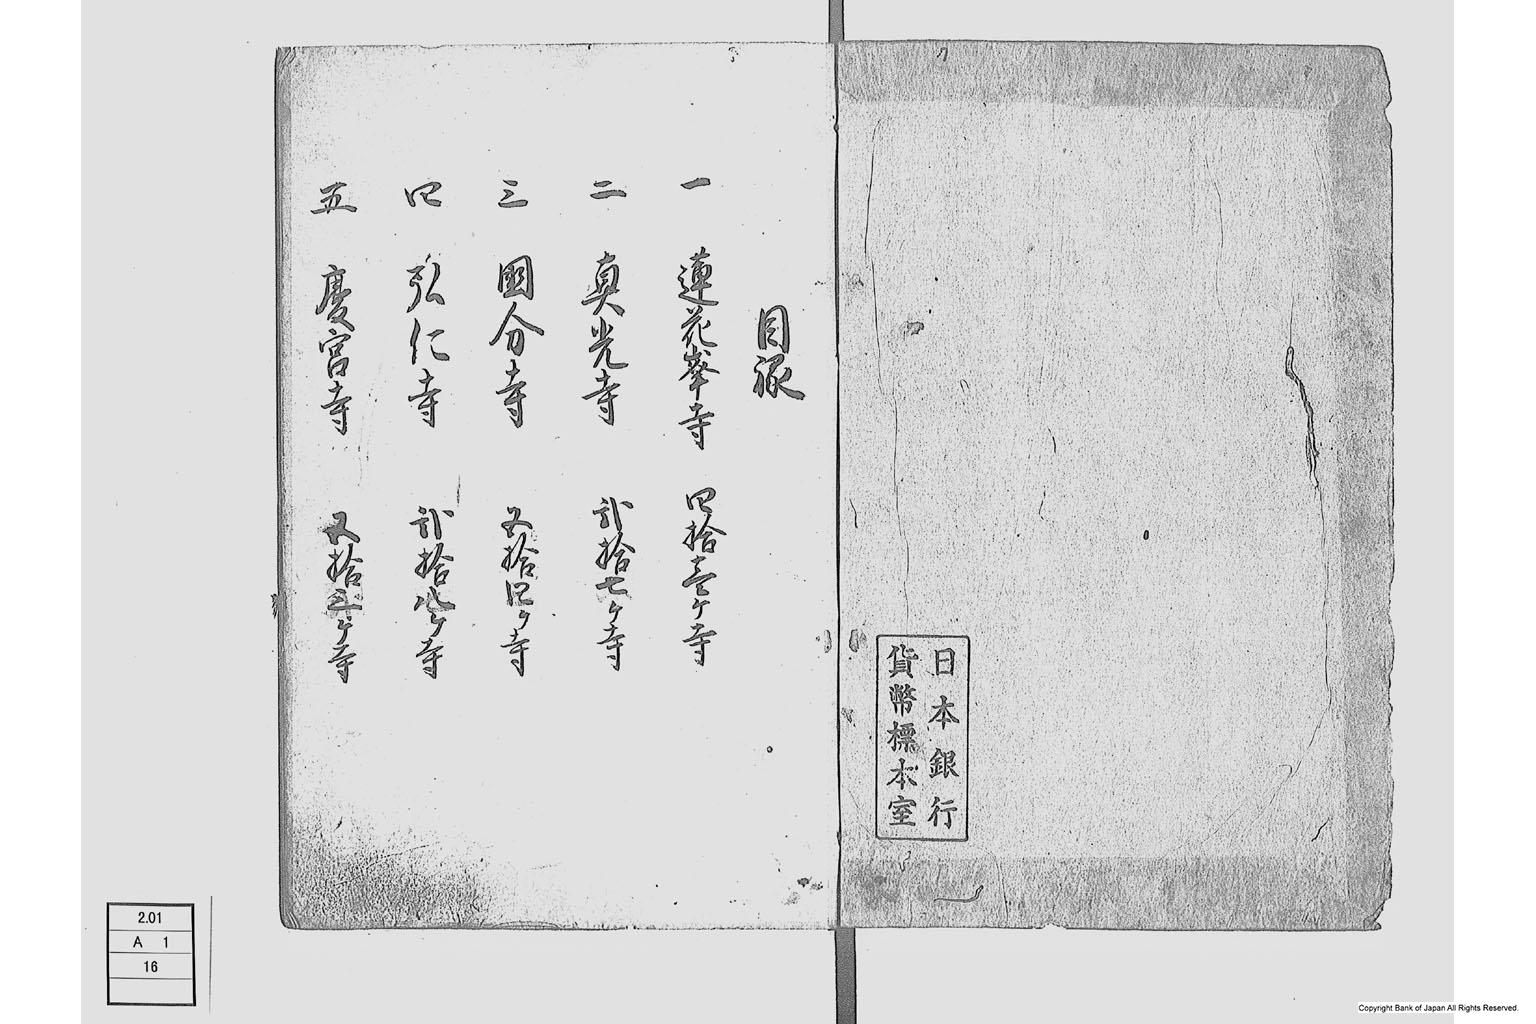 日本銀行
貨幣標本室
目録
一 蓮花峯寺 四拾壱ケ寺
二 真光寺 弐拾七ケ寺
三 國分寺 五拾四ケ寺
四 弘仁寺 弐拾八ケ寺
五 慶宮寺 五拾三ケ寺
2.01
A 1
16
Copyright Bank of Japan All Rights Reserved.